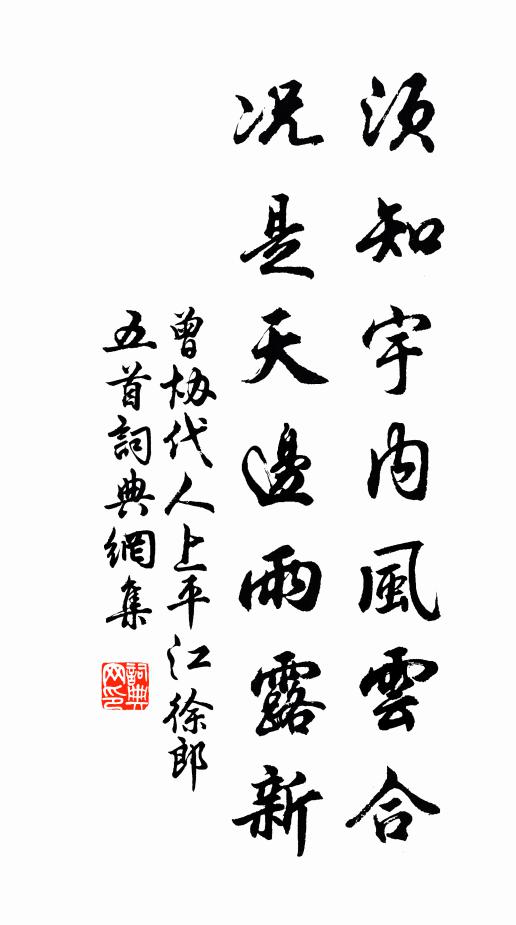 須知宇内風雲合
况是天邊雨露新
曾協代人上平江徐郎
五首詞典網集
詞典
网印